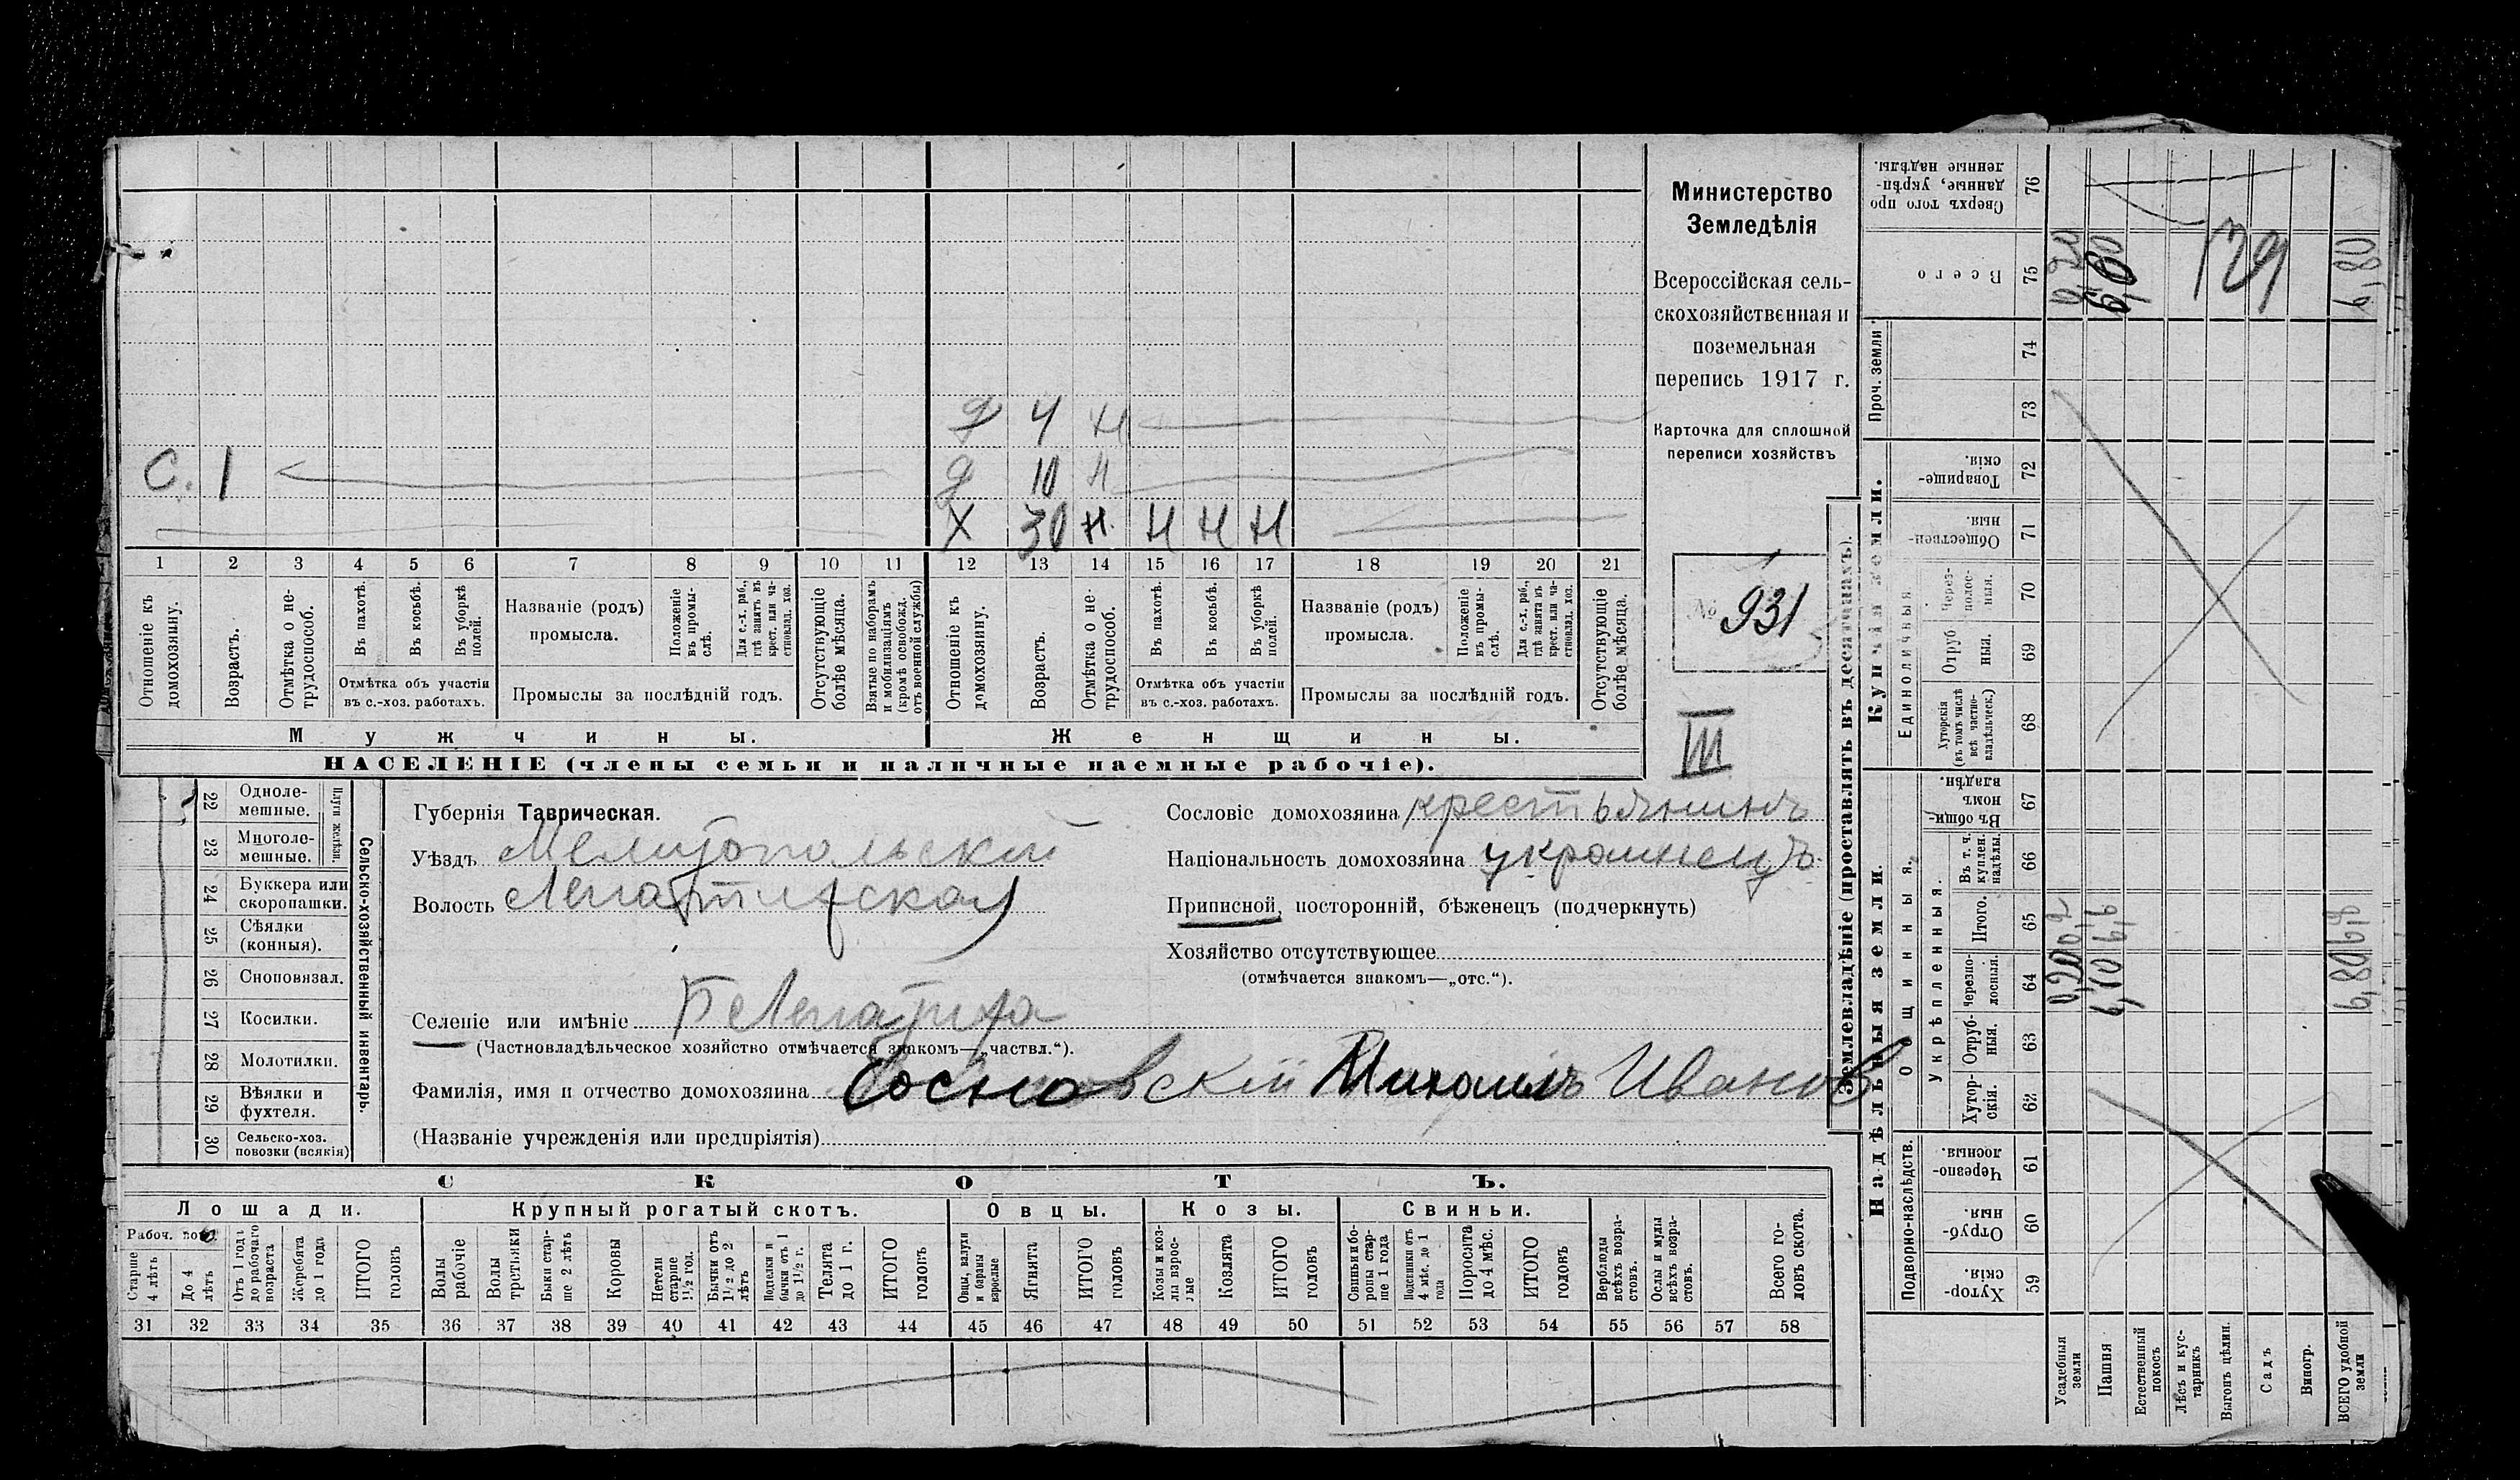 д 4 н
С. 1 д 10 н
Х 30 н Н Н Н
1 2 3 4 5 6 7 8 9 10 11 12 13 14 15 16 17 18 19 20 21
Отношеніе къ домохозяину.
Возрастъ.
Отмѣтка о не-трудоспособ.
Въ пахотѣ.
Въ косьбѣ.
Въ уборкѣ полей.
Отмѣтка объ участіи
въ с.-хоз. работахъ.
Названіе (родъ)
промысла.
Положеніе въ промы-слѣ.
Для с.-х. раб., гдѣ занятъ въ крест. или ча-стновлад. хоз.
Промыслы за послѣдній годъ.
Отсутствующіе болѣе мѣсяца.
Взятые по наборамъ и мобилизаціямъ (кромѣ освобожд. отъ военной службы)
Отношеніе къ домохозяину.
Возрастъ.
Отмѣтка о не-трудоспособ.
Въ пахотѣ.
Въ косьбѣ.
Въ уборкѣ полей.
Отмѣтка объ участіи
въ с.-хоз. работахъ.
Названіе (родъ)
промысла.
Положеніе въ промы-слѣ.
Для с.-х. раб., гдѣ занята въ крест. или ча-стновлад. хоз.
Промыслы за послѣдній годъ.
Отсутствующіе болѣе мѣсяца.
Мужчины. Женщины.
НАСЕЛЕНІЕ (члены семьи и наличные наемные рабочіе).
Министерство
Земледѣлія
Всероссійская сель-
скохозяйственная и
поземельная
перепись 1917 г.
Карточка для сплошной
переписи хозяйствъ
№ 931
III
22 Одноле-мешные.
23 Многоле-мешные.
Плуги желѣзн.
24 Буккера или скоропашки.
25 Сѣялки (конныя).
26 Сноповязал.
27 Косилки.
28 Молотилки.
29 Вѣялки и фухтеля.
30 Сельско-хоз. повозки (всякія)
Сельско-хозяйственный инвентарь.
Губернія Таврическая.
Уѣздъ Мелитопольскій
Волость Лепатихская
Селеніе или имѣніе Б Лепатиха
(Частновладѣльческое хозяйство отмѣчается знакомъ—„частвл.“).
Фамилія, имя и отчество домохозяина Сосновскій Михаилъ Иванов
(Названіе учрежденія или предпріятія)
Сословіе домохозяина крестьянинъ
Національность домохозяина украинецъ
Приписной, посторонній, бѣженецъ (подчеркнуть)
Хозяйство отсутствующее
(отмѣчается знакомъ—„отс.“).
СКОТЪ.
Лошади. Крупный рогатый скотъ. Овцы. Козы. Свиньи.
Старше 4 лѣтъ
До 4 лѣтъ
Отъ 1 года до рабочаго возраста
Жеребята до 1 года
ИТОГО головъ
Волы рабочіе
Волы третьяки
Быки стар-ше 2 лѣтъ
Коровы
Нетели старше 1½ год.
Бычки отъ 1½ до 2 лѣтъ
Подтелки и бычки отъ 1 до 1½ г.
Телята до 1 г.
ИТОГО головъ
Овцы, валухи и бараны взрослые
Ягнята
ИТОГО головъ
Козы и коз-лы взрос-лые
Козлята
ИТОГО головъ
Свиньи и бо-ровы стар-ше 1 года
Подсвинки отъ 4 мѣс. до 1 года
Поросята до 4 мѣс.
ИТОГО головъ
Верблюды всѣхъ возра-стовъ.
Ослы и мулы всѣхъ возра-стовъ.
Всего го-ловъ скота.
31 32 33 34 35 36 37 38 39 40 41 42 43 44 45 46 47 48 49 50 51 52 53 54 55 56 57 58
Землевладѣніе (проставлять въ десятинахъ).
Надѣльныя земли.
Купчія земли.
Проч. земли
Подворно-наслѣдств.
Общинныя.
Укрѣпленныя.
Единоличныя.
59 Хутор-скія.
60 Отруб-ныя.
61 Черезпо-лосныя.
62 Хутор-скія.
63 Отруб-ныя.
64 Черезпо-лосныя.
65 Итого.
66 Въ т. ч. куплен. надѣлы.
67 Въ общин-номъ владѣн.
68 Хуторскія (въ томъ числѣ всѣ частно-владѣльческ.)
69 Отруб ныя.
70 Через-полос-ныя.
71 Обществен-ныя
72 Товарище-скія.
73
74
75 Всего
76 Сверхъ того про данные, укрѣп-ленные надѣлы.
Усадебныя земли 0,20
Пашня
Естественный покосъ
Лѣсъ и кус-тарникъ
Выгонъ цѣлин.
Садъ
Виногр.
ВСЕГО удобной земли 6,80
129